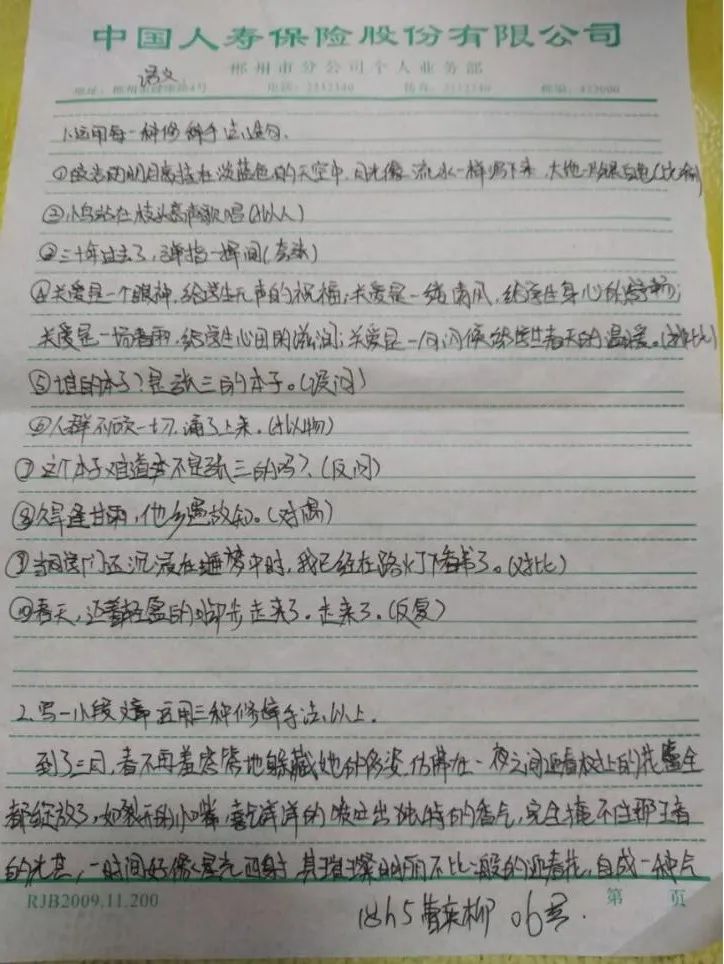 中国人寿保险股份有限公司
郴州市分公司个人业务部
语文
地址：郴州市 电话：2312140 传真：2312140 邮编：423000
1.运用每一种修辞手法造句.
①皎洁的明月高挂在淡蓝色的天空中,月光像流水一样泻下来,大地一片银白色(比喻)
②小鸟站在枝头高声歌唱(拟人)
③三十年过去了,弹指一挥间(夸张)
④关爱是一个眼神,给学生无声的祝福;关爱是一缕清风,给学生身心的舒畅;
关爱是一场春雨,给学生心田的滋润;关爱是一句问候给学生春天的温暖。(排比)
⑤谁的本子?是张三的本子。(设问)
⑥人群不顾一切,涌了上来。(拟物)
⑦这个本子难道不是张三的吗?(反问)
⑧久旱逢甘雨,他乡遇故知。(对偶)
⑨当同学门还沉浸在睡梦中时,我已经在路灯下看书了。(对比)
⑩春天,迈着轻盈的脚步走来了。走来了。(反复)
2.写一小段文章运用三种修辞手法以上.
到了三月,春不再羞答答地躲藏她的多姿仿佛在一夜之间迎春枝上的花蕾全
都绽放了,如裂开的小嘴喜气洋洋的吐出独特的香气,完全掩不住那王者
的光芒,一时间好像星光四射其璀璨明丽不比一般的迎春花,自成一种气
RJB2009.11.200
第 页
06号